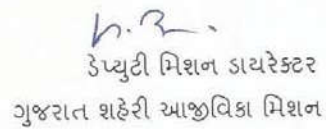 ડેપ્યુટી મિશન ડાયરેક્ટર
ગુજરાત શહેરી આજીવિકા મિશન